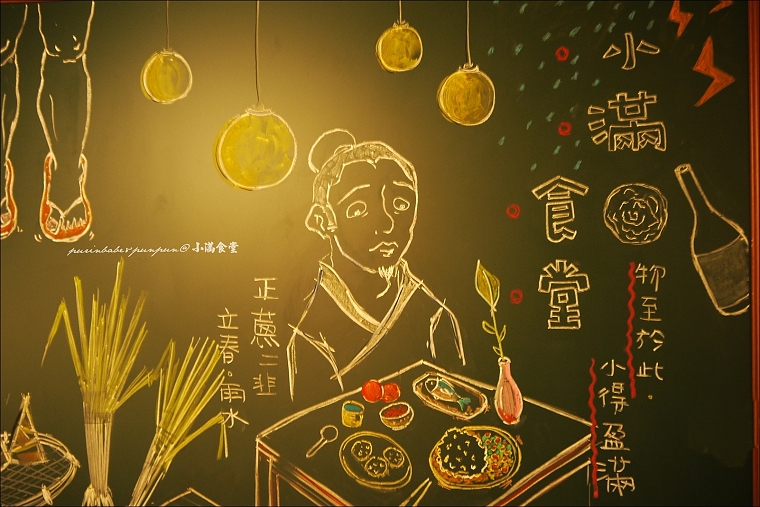 小滿
食堂
物至於此。
小得盈滿
正蔥二韭
立春。雨水
purinbabe&punpun@小滿食堂